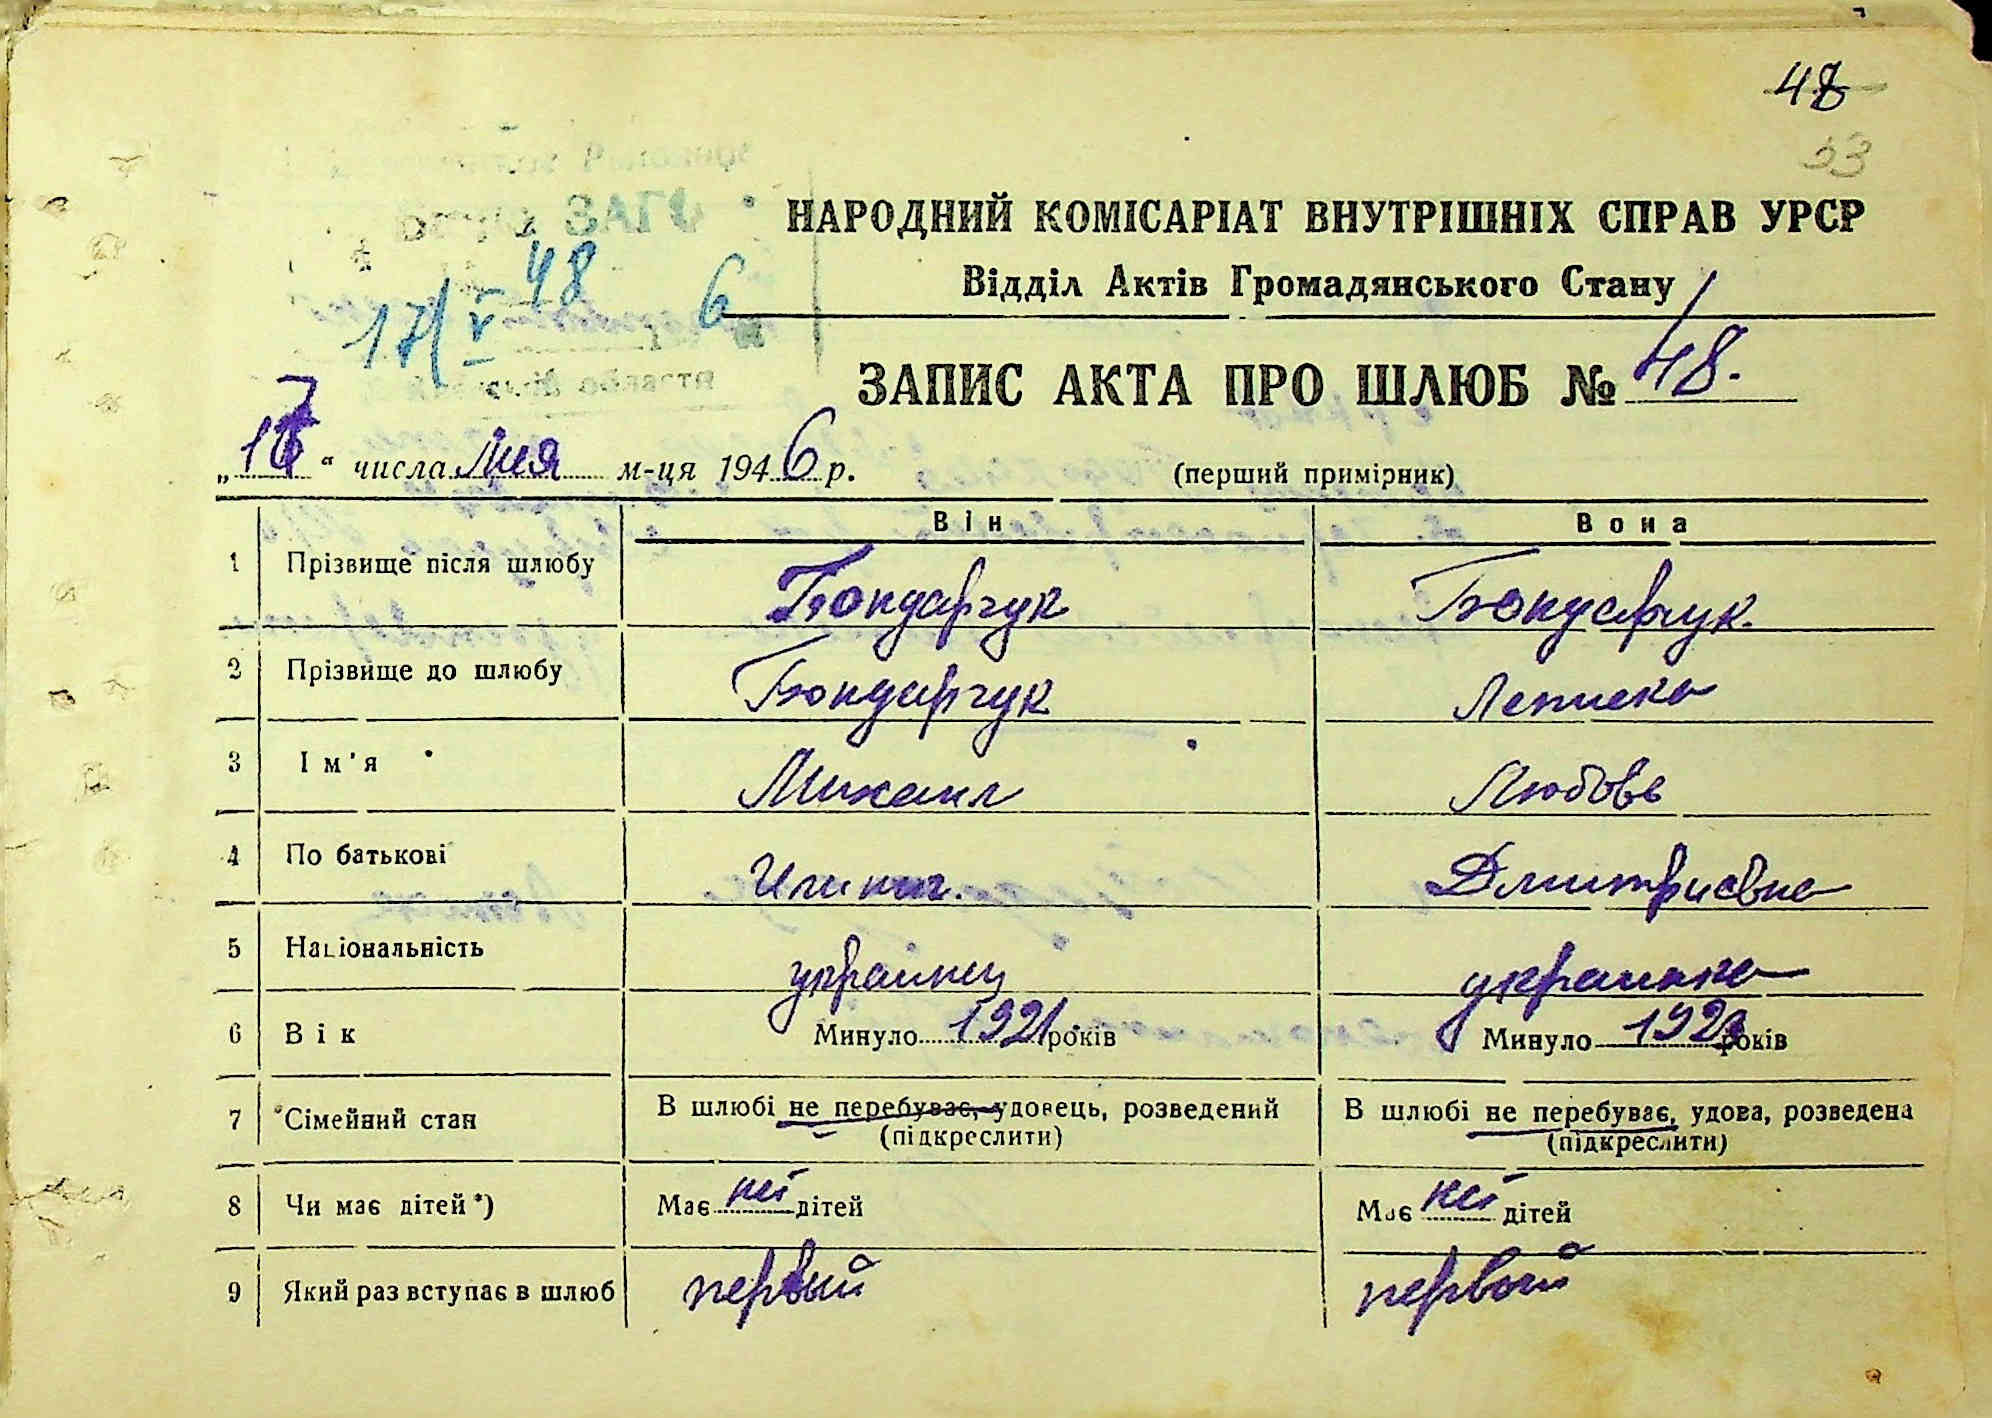 48
33
НАРОДНИЙ КОМІСАРІАТ ВНУТРІШНІХ СПРАВ УРСР
Відділ Актів Громадянського Стану
48
17/V 6
ЗАПИС АКТА ПРО ШЛЮБ № 48.
„17“ числа Мая м-ця 1946 р.
(перший примірник)
Він Вона
1 Прізвище після шлюбу Бондарчук Бондарчук.
2 Прізвище до шлюбу Бондарчук
3 Ім'я Михаил Любовь
4 По батькові Дмитриевна
5 Національність украинец украинка
6 Вік Минуло 1921 років Минуло років
7 Сімейний стан В шлюбі не перебуває, удовець, розведений В шлюбі не перебуває, удова, розведена
(підкреслити) (підкреслити)
8 Чи має дітей*) Має дітей Має дітей
9 Який раз вступає в шлюб первый первый